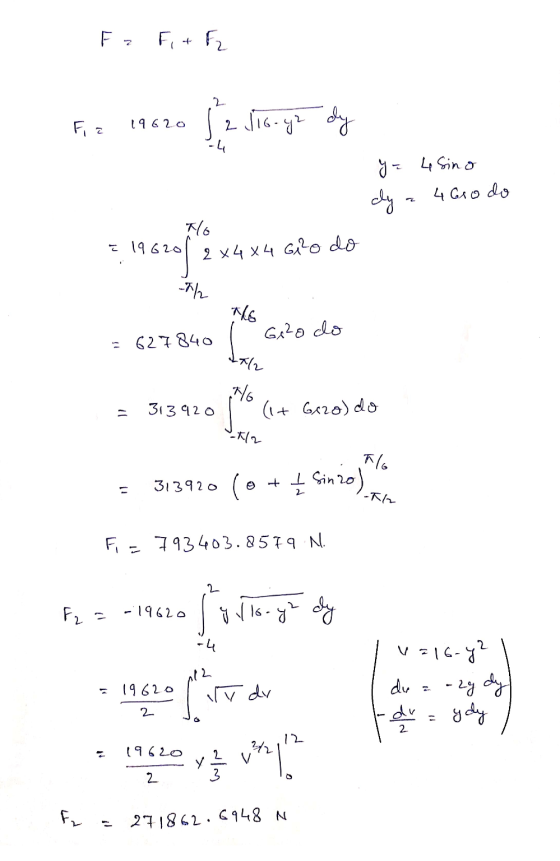 F = F₁ + F₂
F₁ = 19620 ∫₋₄² 2 √16-y² dy
y = 4 Sin θ
dy = 4 Cosθ dθ
= 19620 ∫_{-π/2}^{π/6} 2 x4 x4 Cos²θ dθ
= 627840 ∫_{-π/2}^{π/6} Cos²θ dθ
= 313920 ∫_{-π/2}^{π/6} (1+ Cos2θ) dθ
= 313920 (θ + 1/2 Sin2θ)_{-π/2}^{π/6}
F₁ = 793403.8579 N.
F₂ = -19620 ∫₋₄² y √16-y² dy
v = 16-y²
du = -2y dy
-du/2 = ydy
= 19620/2 ∫₀¹² √v dv
= 19620/2 x 2/3 v^{3/2} |₀¹²
F₂ = 271862.6948 N